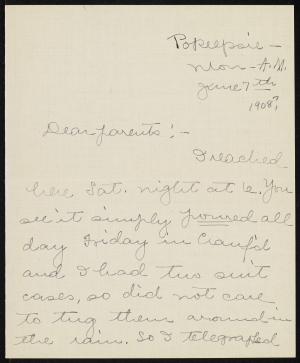 Pokeepsie -
Mon - A.M.
June 7th
1908?
Dear parents:-
I reached
here Sat. night at 6. You
see it simply poured all
day Friday in Cranf'd
and I had two suit
cases, so did not care
to tug them around in
the rain. So I telegrafed